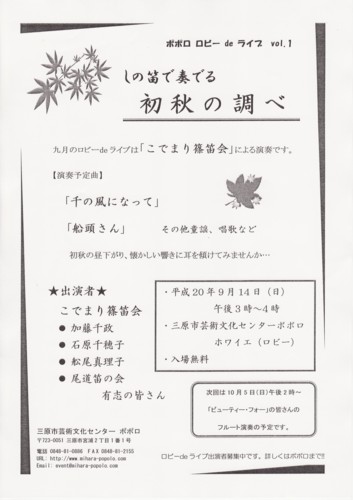 ポポロ ロビー de ライブ vol.1
しの笛で奏でる
初秋の調べ
九月のロビーdeライブは「こでまり篠笛会」による演奏です。
【演奏予定曲】
「千の風になって」
「船頭さん」 その他童謡、唱歌など
初秋の昼下がり、懐かしい響きに耳を傾けてみませんか…
★出演者★
こでまり篠笛会
● 加藤千政
● 石原千穂子
● 舩尾真理子
● 尾道笛の会
有志の皆さん
・平成20年9月14日（日）
午後3時～4時
・三原市芸術文化センターポポロ
ホワイエ（ロビー）
・入場無料
次回は10月5日(日)午後2時～
「ビューティー・フォー」の皆さんの
フルート演奏の予定です。
三原市芸術文化センター ポポロ
〒723-0051 三原市宮浦2丁目1番1号
電話 0848-81-0886 FAX 0848-81-2155
URL: http://www.mihara-popolo.com
Email: event@mihara-popolo.com
ロビーdeライブ出演者募集中です。詳しくはポポロまで!!